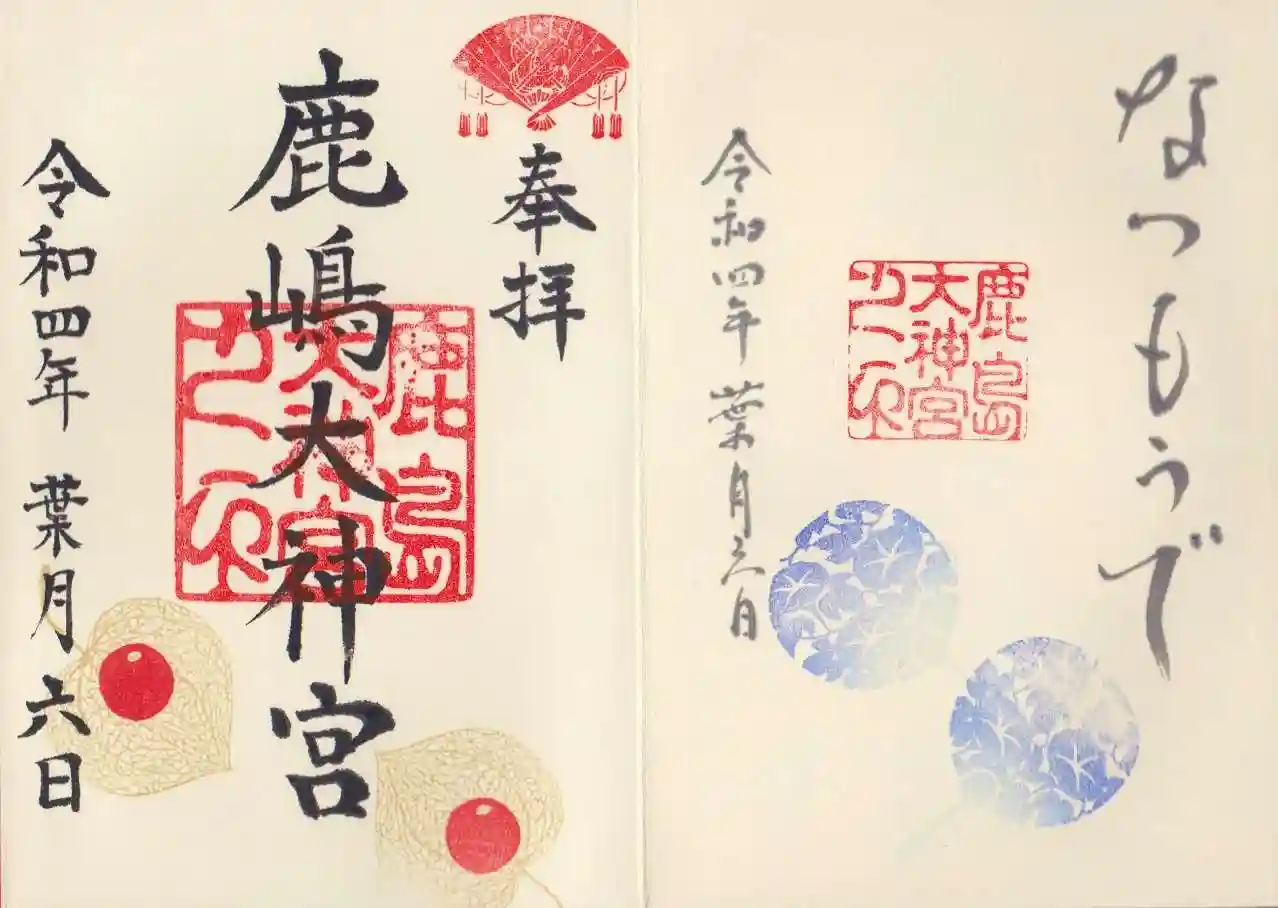 なつもうで
鹿島
大神宮
令和四年葉月三日
奉拝
鹿嶋大神宮
鹿島
大神宮
令和四年 葉月 六日